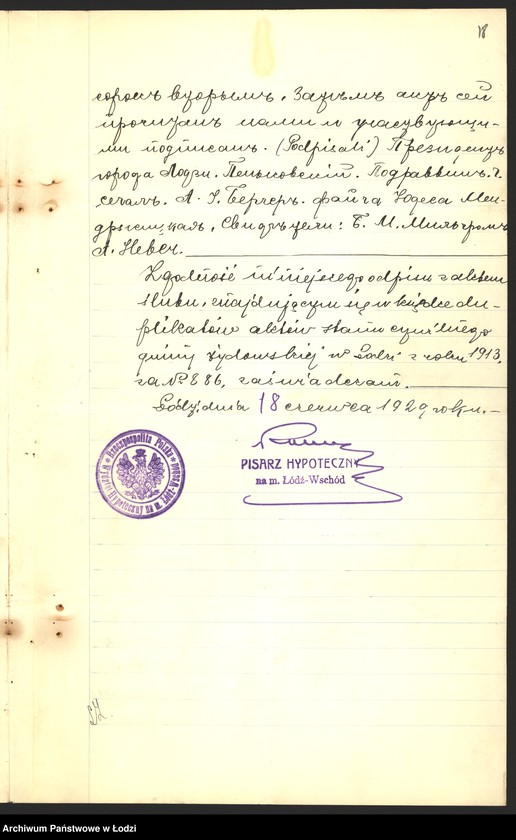 18
сорокъ вторымъ. Затѣмъ актъ сей
прочитанъ нами и участвующи-
ми подписанъ. (Podpisali) Президентъ
города Лодзи. Пеньковскій. Подраввинъ. Г.
сегалъ. А. I. Бергеръ. файга Худеса Мен-
дры, Свидѣтели: Б. М. Мильгромъ
А. Невен.
Zgodność niniejszego odpisu z aktem
ślubu, znajdującym się w księdze du-
plikatów aktów stanu cywilnego
gminy żydowskiej w Łodzi z roku 1913,
za № 286, zaświadczam.
Łódź, dnia 18 czerwca 1929 roku.-
Rzeczpospolita Polska
Wydział Hypoteczny na m. Łódź-Wschód
PISARZ HYPOTECZNY
na m. Łódź-Wschód
Archiwum Państwowe w Łodzi